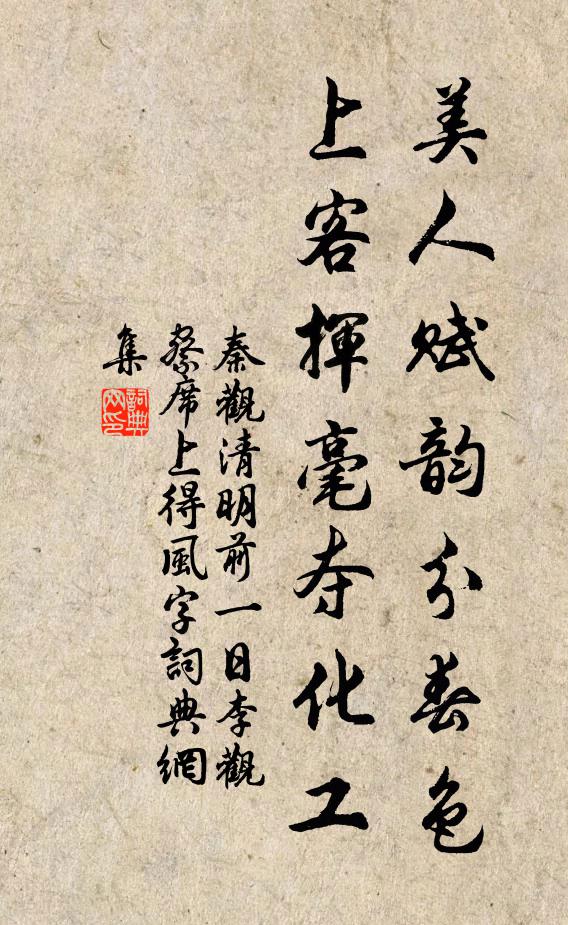 美人赋韵分春色
上客揮毫夺化工
秦觀清明前一日李觀
察席上得風字詞典網
集
詞典
网印